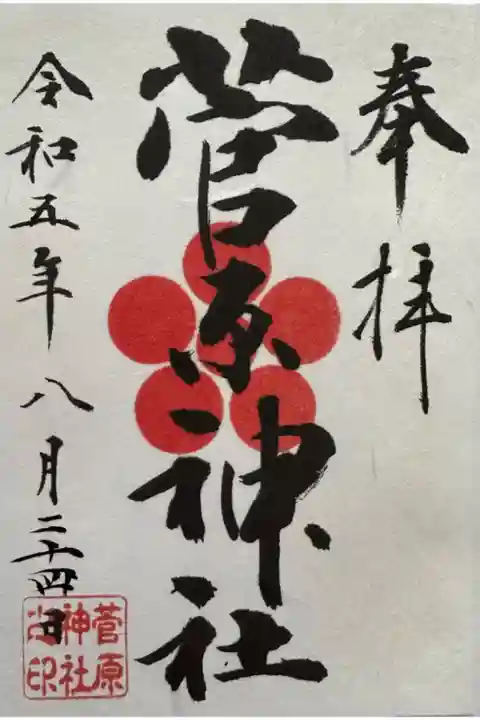 奉拝
菅原神社
令和五年八月二十四日
菅原
神社
之印